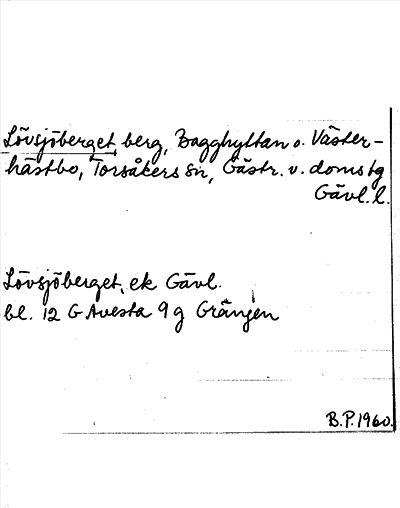 Lövsjöberget berg, Bagghyttan o. Väster-
hästbo, Torsåkers sn, Gästr. v. domstg
Gävl. l.
Lövsjöberget, ek Gävl.
bl. 12 G Avesta 9 g Grängen
B.P. 1960.